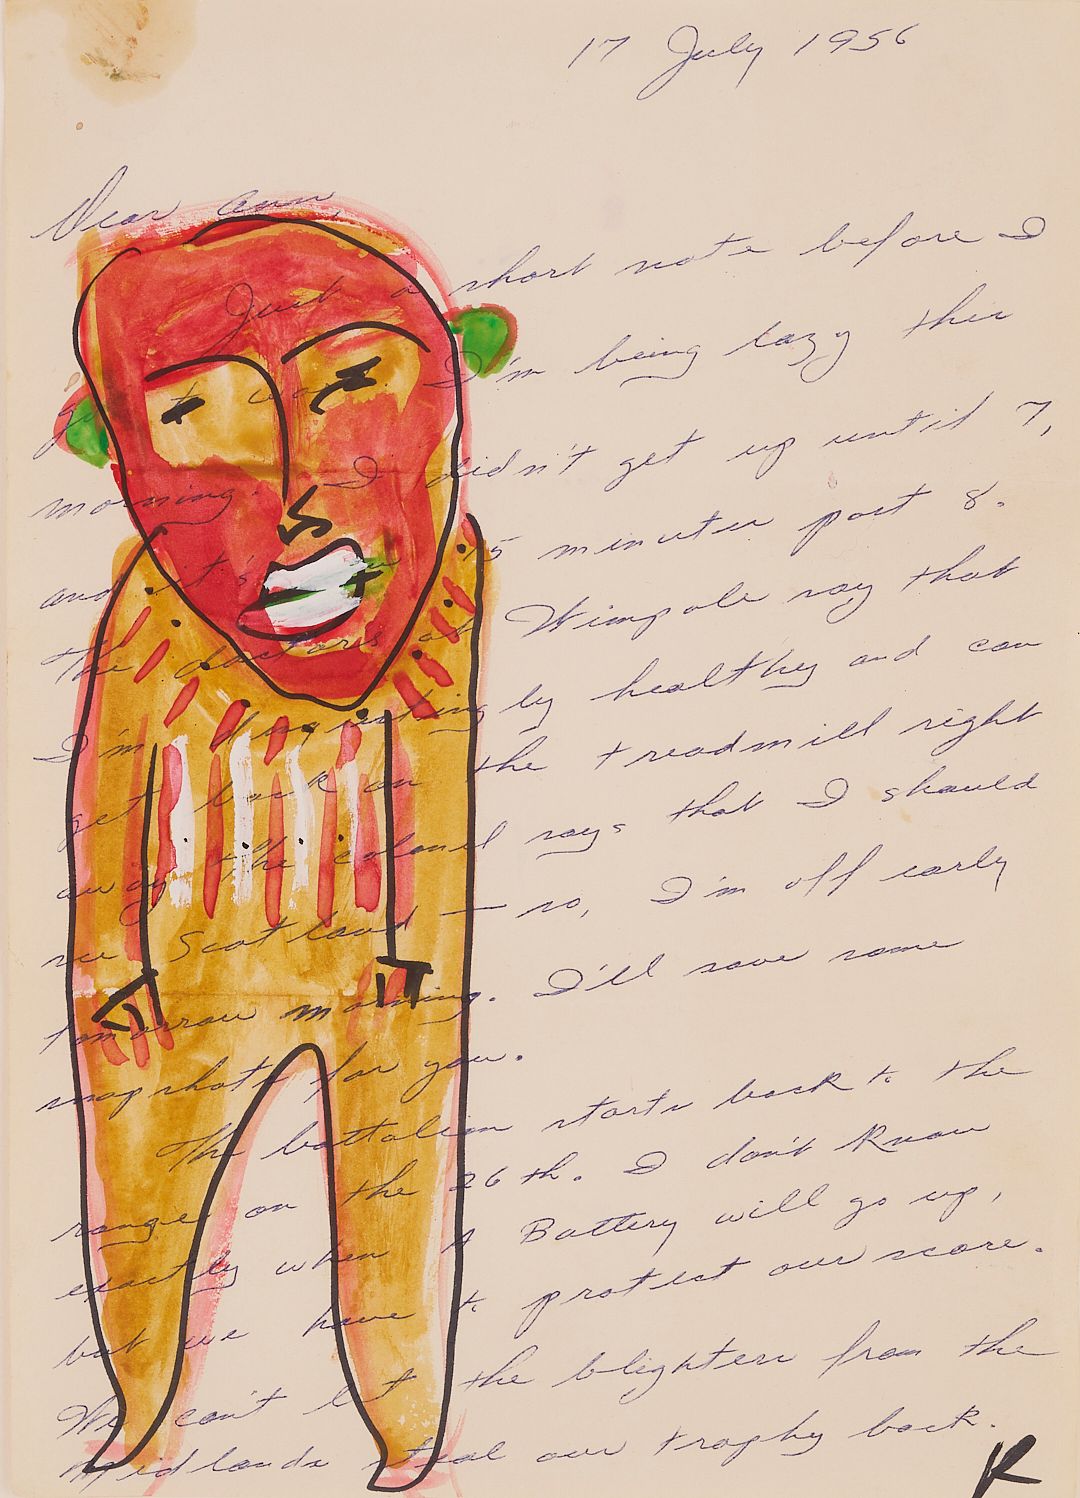 17 July 1956
Dear Ann,
Just a short note before I
get to work. I'm being lazy this
morning. I didn't get up until 7,
and it's now 15 minutes past 8.
The doctors at Wimpole say that
I'm disgustingly healthy and can
get back on the treadmill right
away. The colonel says that I should
see Scotland — so, I'm off early
tomorrow morning. I'll save some
snapshots for you.
The battalion starts back to the
range on the 26th. I don't know
exactly when A Battery will go up,
but we have to protect our score.
We can't let the blighters from the
Midlands steal our trophy back.
R